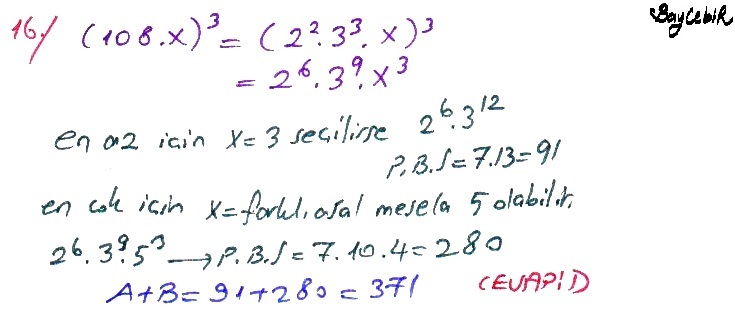 BayCebiR
16./ (108.x)³ = (2².3³.x)³
= 2⁶.3⁹.x³
en az için x=3 seçilirse 2⁶.3¹²
P.B.S=7.13=91
en çok için x=farklı asal mesela 5 olabilir.
2⁶.3⁹.5³ → P.B.S=7.10.4=280
A+B=91+280=371 CEVAP:D